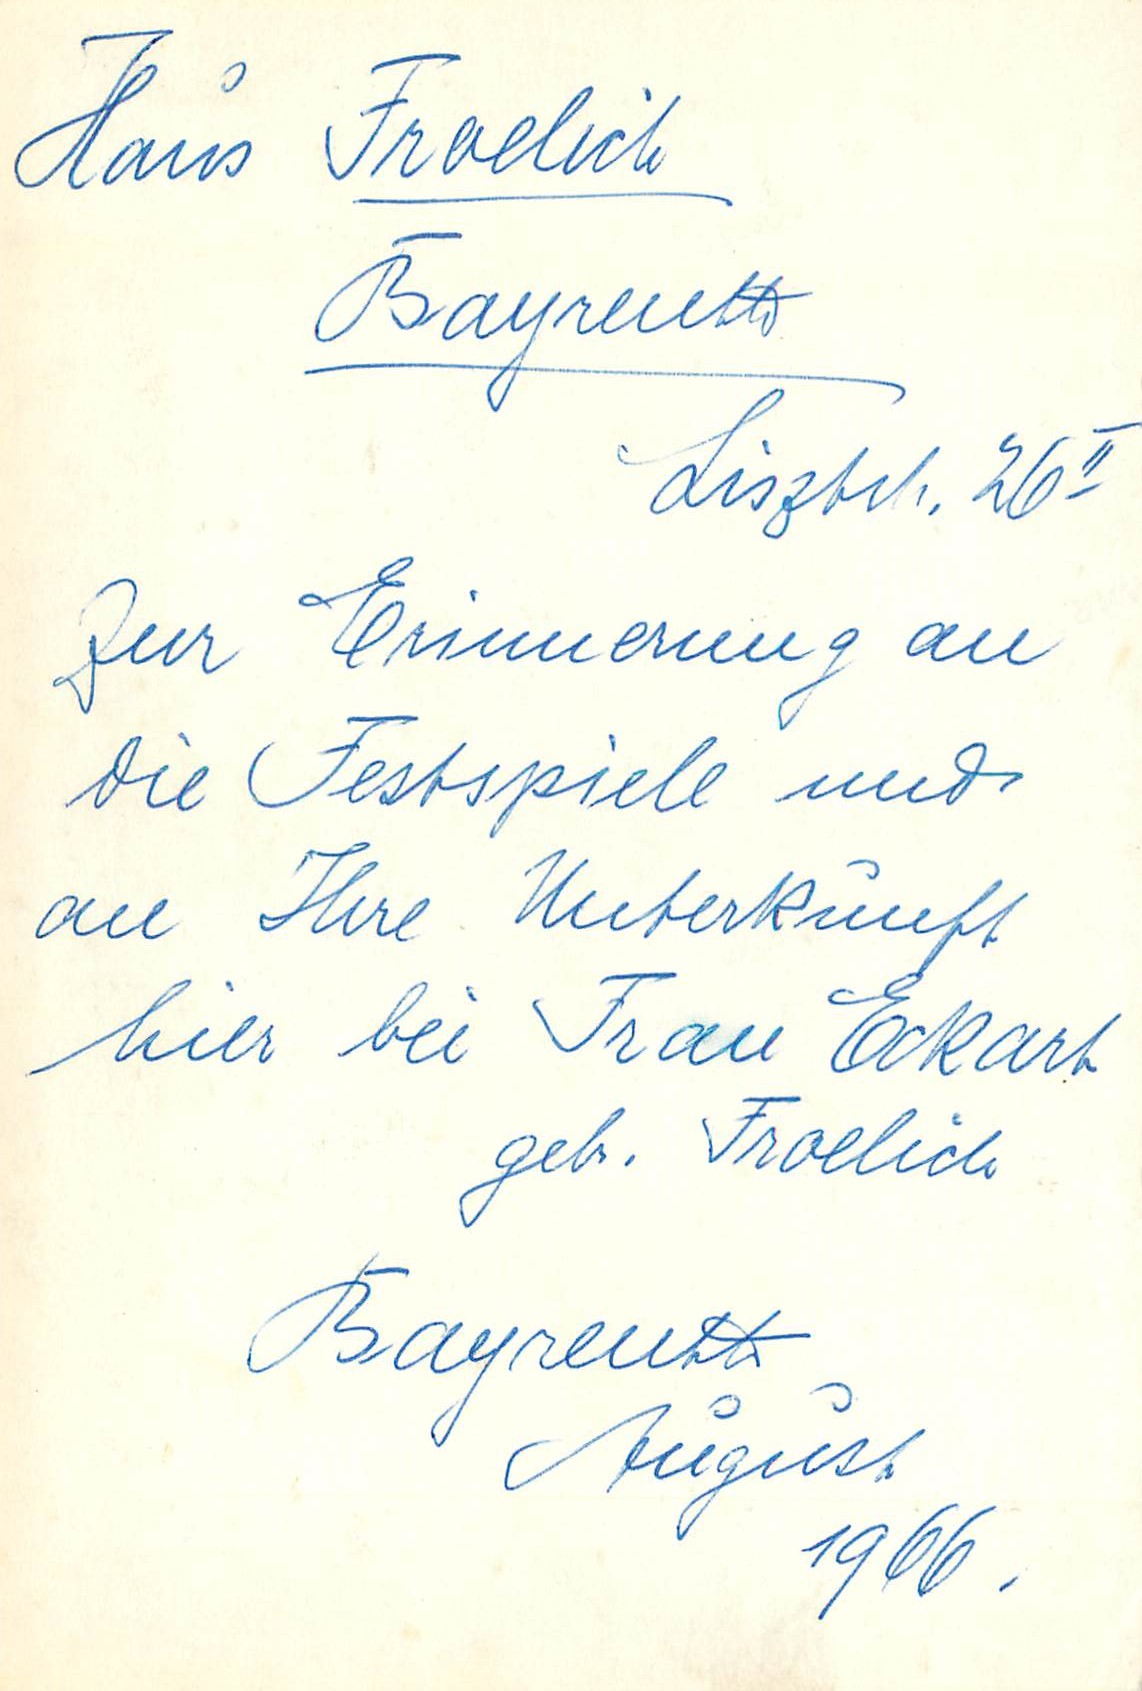 Haus Froelich
Bayreuth
Lisztstr. 26 II
Zur Erinnerung an
die Festspiele und
an Ihre Unterkunft
hier bei Frau Eckart
geb. Froelich
Bayreuth
August
1966.